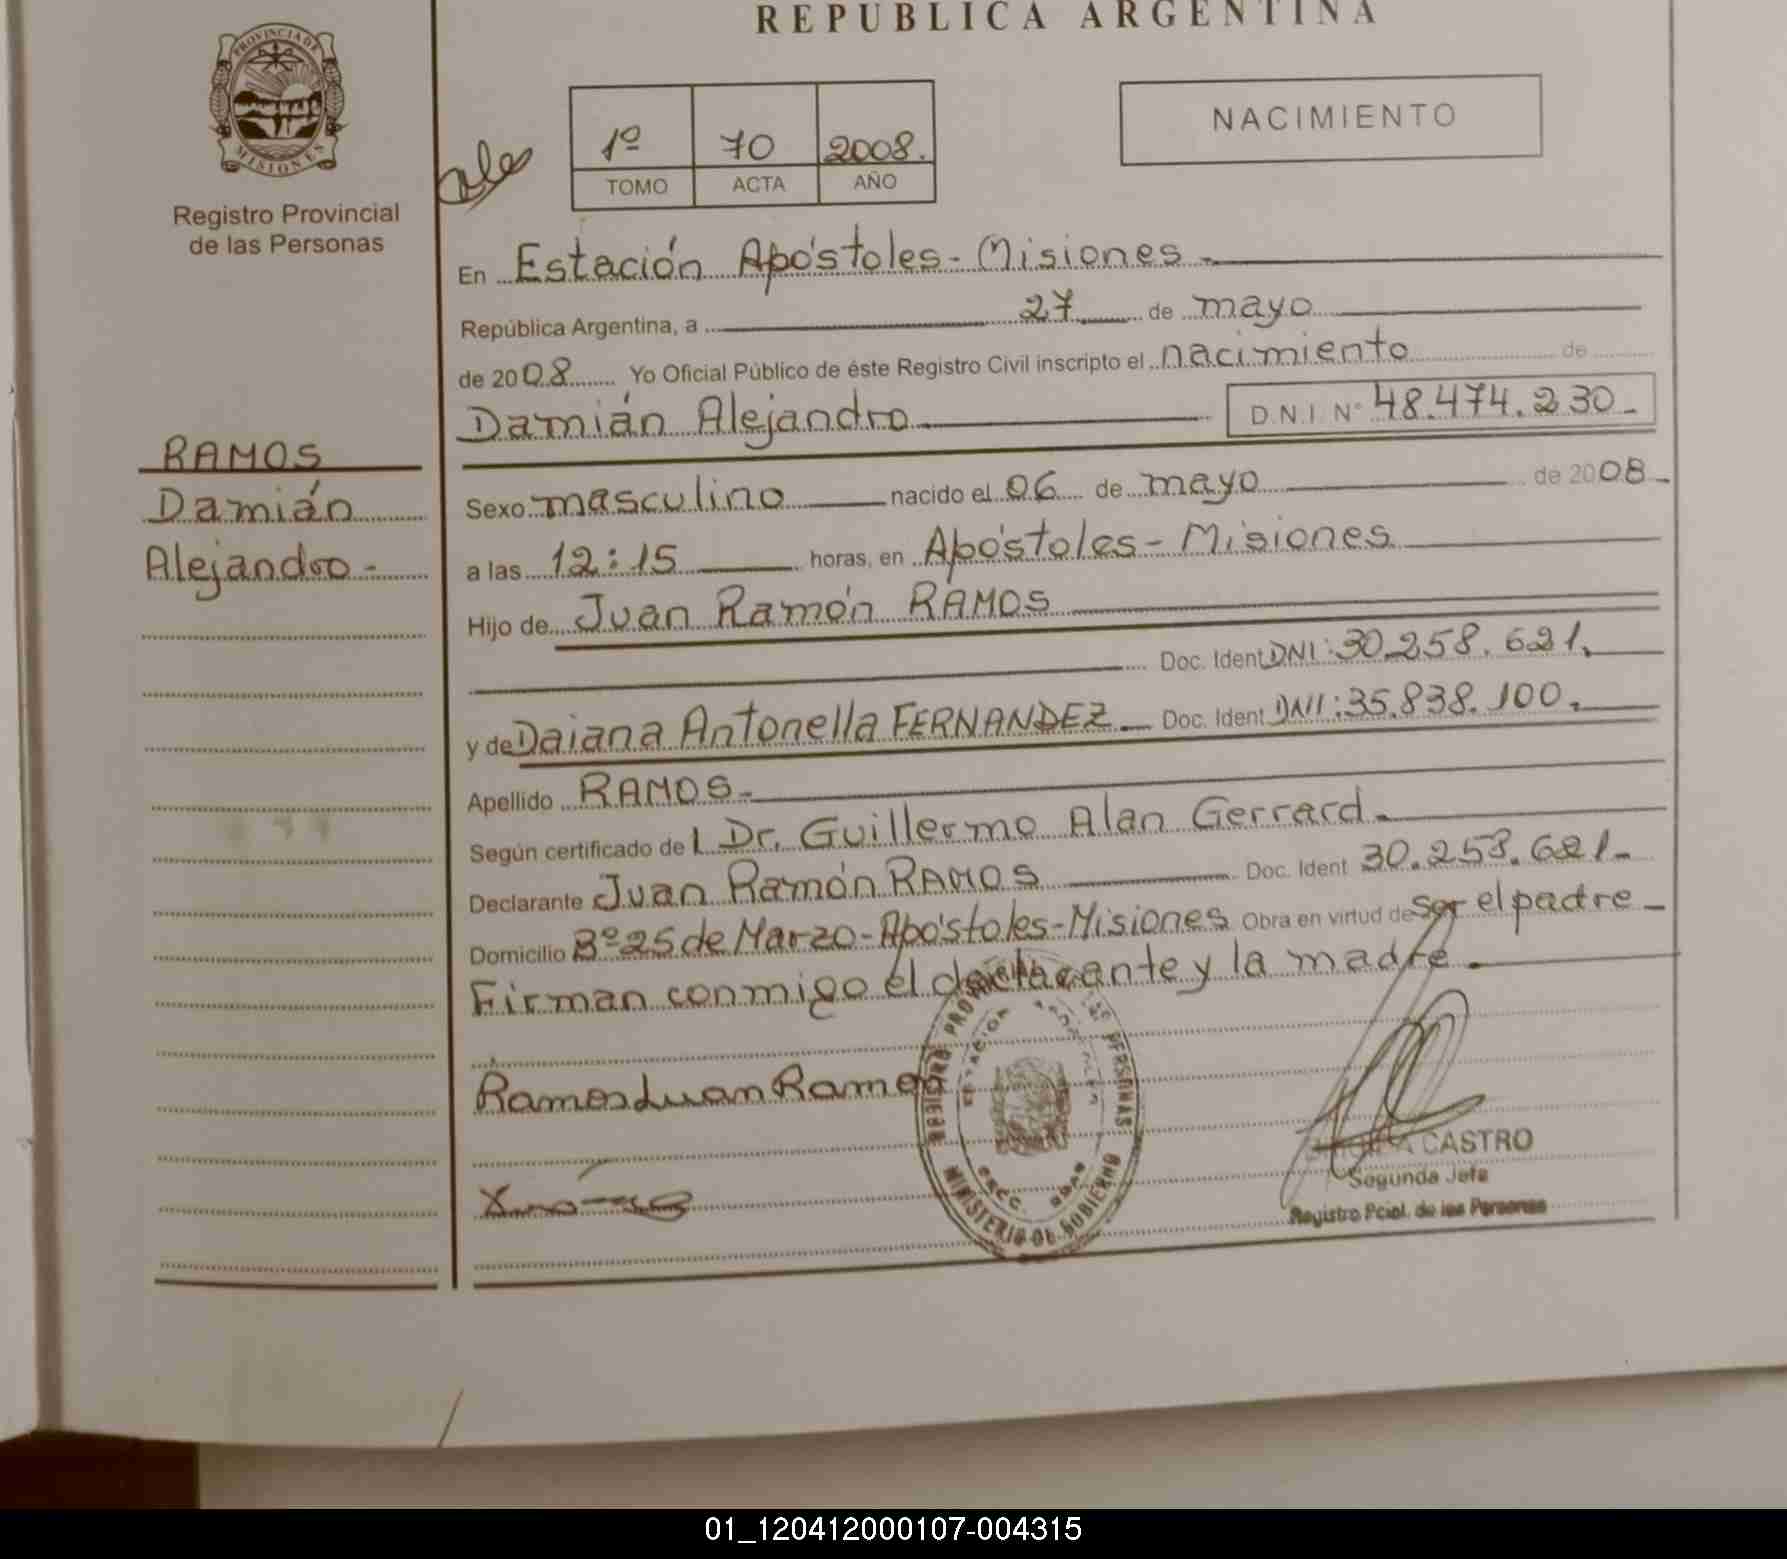 REPUBLICA ARGENTINA
PROVINCIA DE
MISIONES
Registro Provincial
de las Personas
1º 70 2008.
TOMO ACTA AÑO
NACIMIENTO
En Estación Apóstoles - Misiones
República Argentina, a 27 de mayo
de 2008 Yo Oficial Público de éste Registro Civil inscripto el nacimiento de
Damián Alejandro D.N.I. Nº 48.474.230.
RAMOS
Damián
Alejandro -
Sexo masculino nacido el 06 de mayo de 2008
a las 12:15 horas, en Apóstoles - Misiones
Hijo de Juan Ramón RAMOS
Doc. Ident DNI: 30.258.621.
y de Daiana Antonella FERNANDEZ Doc. Ident DNI: 35.838.100.
Apellido RAMOS -
Según certificado de l Dr. Guillermo Alan Gerrard.
Declarante Juan Ramón RAMOS Doc. Ident 30.258.621.
Domicilio Bº 25 de Marzo - Apóstoles - Misiones Obra en virtud de ser el padre
Firman conmigo el declarante y la madre.
Ramos Juan Ramon
CASTRO
Segunda Jefe
Registro Pcial. de las Personas
MINISTERIO DE GOBIERNO
01_120412000107-004315